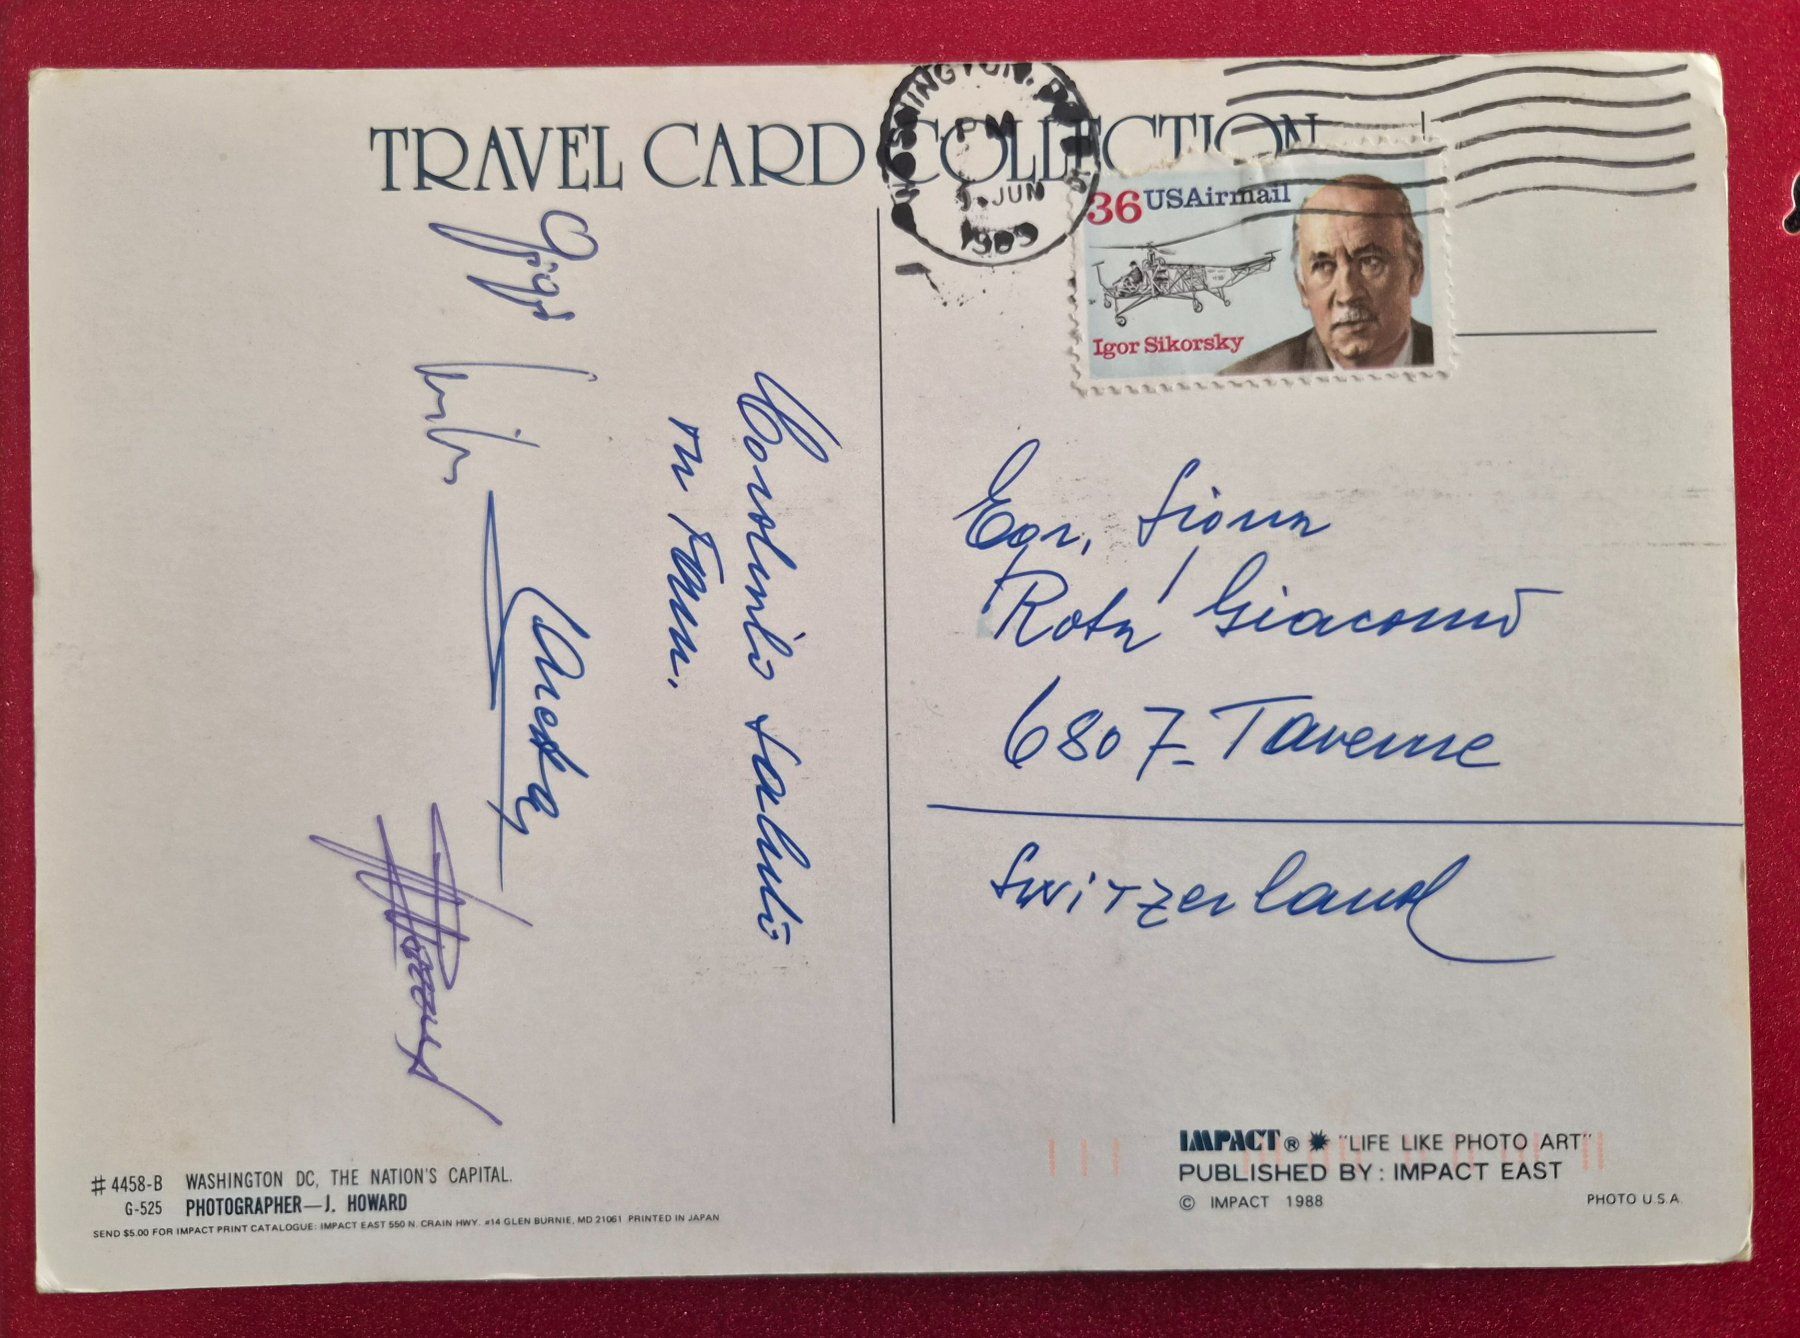 TRAVEL CARD COLLECTION
WASHINGTON, D.C.
PM
JUN
1989
36 USAirmail
Igor Sikorsky
saluti
Egr.
Rota Giacomo
6807 - Taverne
Switzerland
# 4458-B WASHINGTON DC, THE NATION'S CAPITAL.
G-525 PHOTOGRAPHER—J. HOWARD
SEND $5.00 FOR IMPACT PRINT CATALOGUE: IMPACT EAST 550 N. CRAIN HWY. #14 GLEN BURNIE, MD 21061 PRINTED IN JAPAN
IMPACT® "LIFE LIKE PHOTO ART"
PUBLISHED BY: IMPACT EAST
© IMPACT 1988
PHOTO U.S.A.